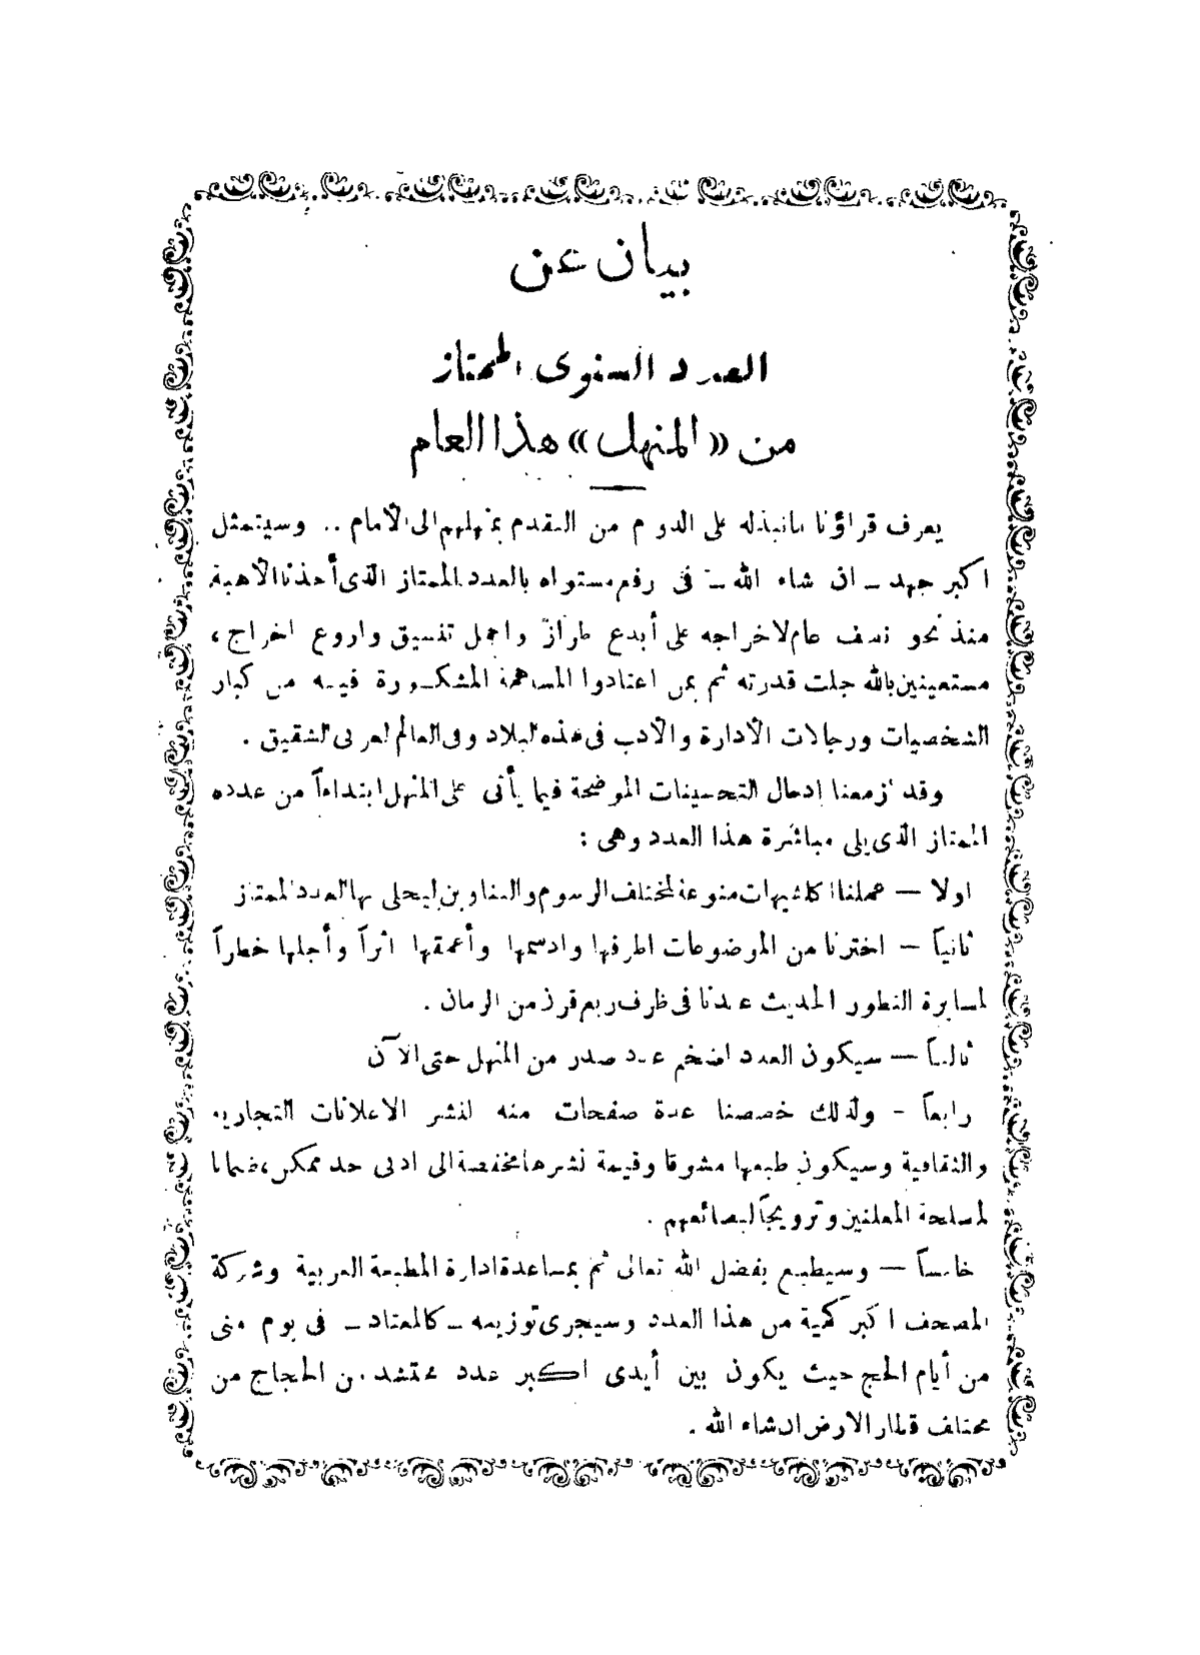 بيان عن
العدد السنوى الممتاز
من «المنهل» هذا العام
يعرف قراؤنا مانبذله على الدوام من التقدم بمنهلهم الى الأمام .. وسيتمثل
اكبر جهد ـ ان شاء الله ـ فى رفع مستواه بالعدد الممتاز الذى أخذنا الأهبة
منذ نحو نصف عام لاخراجه على أبدع طراز واجمل تنسيق واروع اخراج ،
مستعينين بالله جلت قدرته ثم بمن اعتادوا المساهمة المشكورة فيه من كبار
الشخصيات ورجالات الأدارة والأدب فى هذه البلاد وفى العالم العربى الشقيق .
وقد أزمعنا إدخال التحسينات الموضحة فيما يأتى على المنهل ابتداءاً من عدده
الممتاز الذى يلى مباشرة هذا العدد وهى :
اولا — عملنا اكلشيهات منوعة لمختلف الرسوم والعناوين ليحلى بها العدد الممتاز
ثانياً — اخترنا من الموضوعات اطرفها وادسمها وأعمقها اثراً وأجلها خطراً
لمسايرة التطور الحديث عندنا فى ظرف ربع قرن من الزمان .
ثالثاً — سيكون العدد اضخم عدد صدر من المنهل حتى الآن
رابعاً - ولذلك خصصنا عدة صفحات منه لنشر الاعلانات التجارية
والثقافية وسيكون طبعها مشوقا وقيمة نشرها مخفضة الى ادنى حد ممكن، ضمانا
لمصلحة المعلنين وترويجاً لبضائعهم .
خامساً — وسيطبع بفضل الله تعالى ثم بمساعدة ادارة المطبعة العربية وشركة
المصحف اكبر كمية من هذا العدد وسيجرى توزيعه ـ كالمعتاد ـ فى يوم منى
من أيام الحج حيث يكون بين أيدى اكبر عدد محتشد من الحجاج من
مختلف اقطار الارض ان شاء الله .